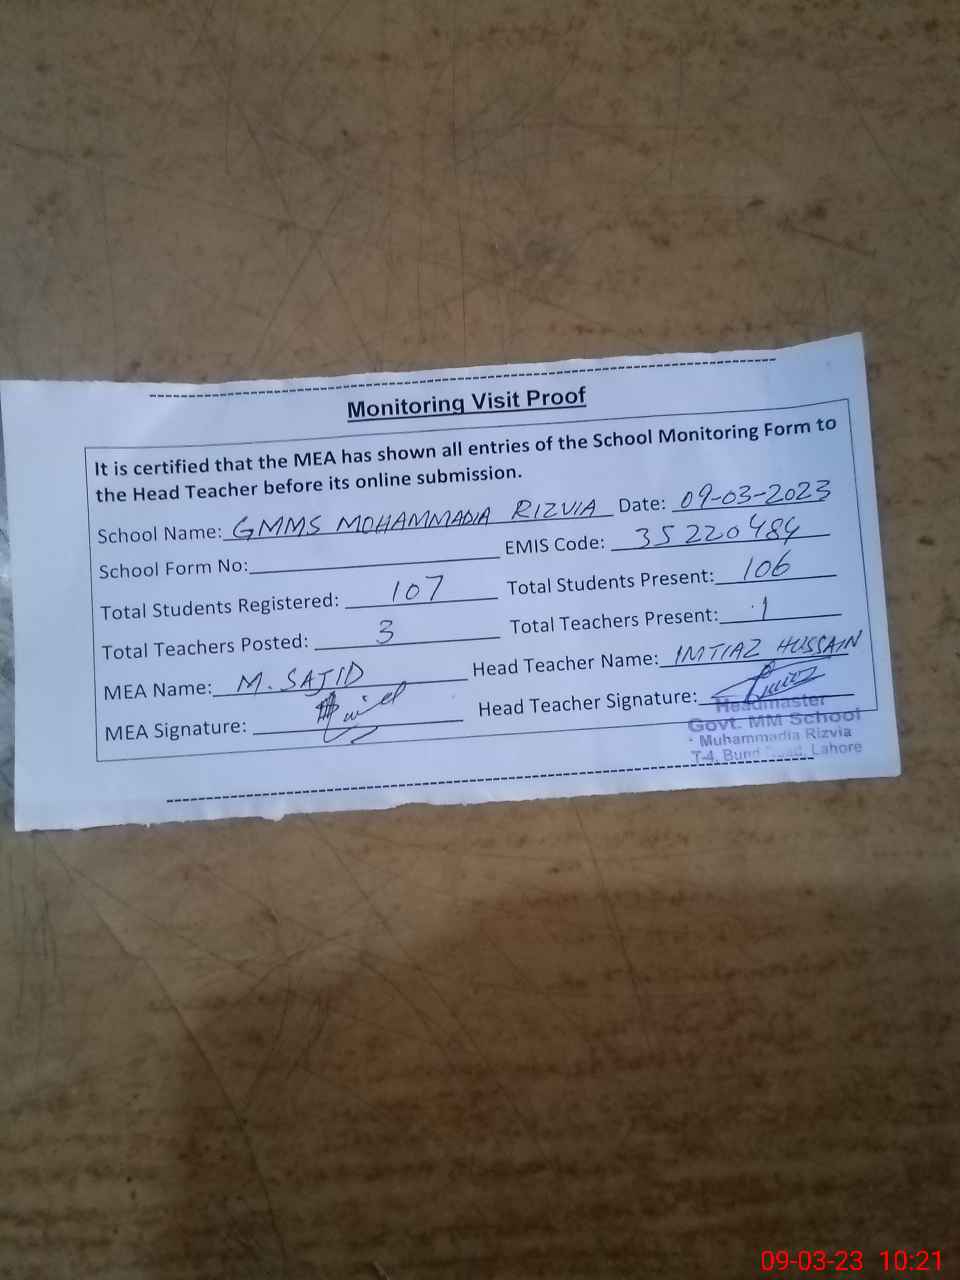 Monitoring Visit Proof
It is certified that the MEA has shown all entries of the School Monitoring Form to
the Head Teacher before its online submission.
School Name: GMMS MOHAMMADIA RIZVIA Date: 09-03-2023
School Form No: EMIS Code: 35220484
Total Students Registered: 107 Total Students Present: 106
Total Teachers Posted: 3 Total Teachers Present: 1
MEA Name: M. SAJID Head Teacher Name: IMTIAZ HUSSAIN
MEA Signature: Head Teacher Signature:
Headmaster
Govt. MM School
Muhammadia Rizvia
T-4, Bund Road, Lahore
09-03-23 10:21